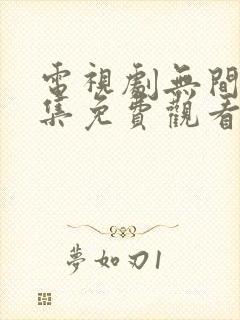 電視劇無間
集免費觀看
夢如刃1